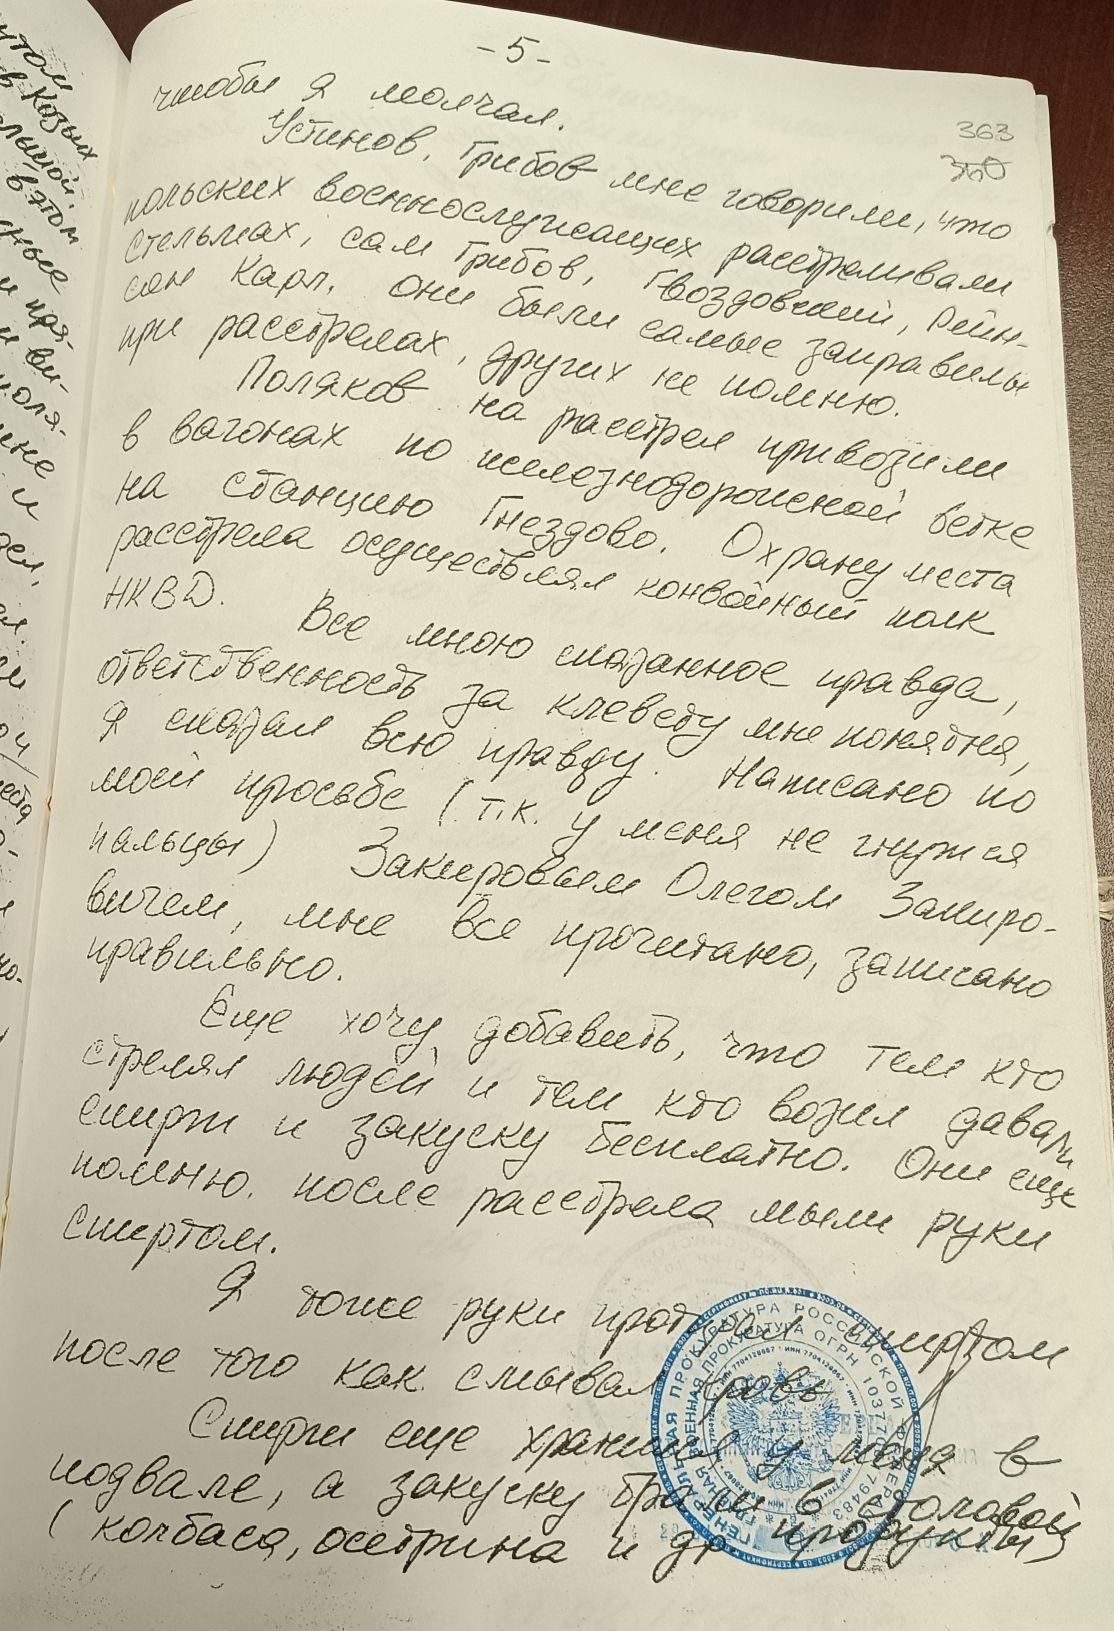 - 5 -
363
360
чтобы я молчал.
Устинов, Грибов мне говорили, что
польских военнослужащих расстреливали
Стельмах, сам Грибов, Гвоздовский, Рейн-
сон Карл. Они были самые заправилы
при расстрелах, других не помню.
Поляков на расстрел привозили
в вагонах по железнодорожной ветке
на станцию Гнездово. Охрану места
расстрела осуществлял конвойный полк
НКВД.
Все мною сказанное правда,
ответственность за клевету мне понятна,
я сказал всю правду. Написано по
моей просьбе (т.к. у меня не гнутся
пальцы) Закировым Олегом Закиро-
вичем, мне все прочитано, записано
правильно.
Еще хочу добавить, что тем кто
стрелял людей и тем кто возил давали
спирт и закуску бесплатно. Они еще
помню. после расстрела мыли руки
спиртом.
Я тоже руки протирал спиртом
после того как смывал кровь
Спирт еще хранился у меня в
подвале, а закуску брали в столовой
(колбаса, осетрина и др продукты)
ГЕНЕРАЛЬНАЯ ПРОКУРАТУРА РОССИЙСКОЙ ФЕДЕРАЦИИ
ГЛАВНАЯ ВОЕННАЯ ПРОКУРАТУРА ОГРН